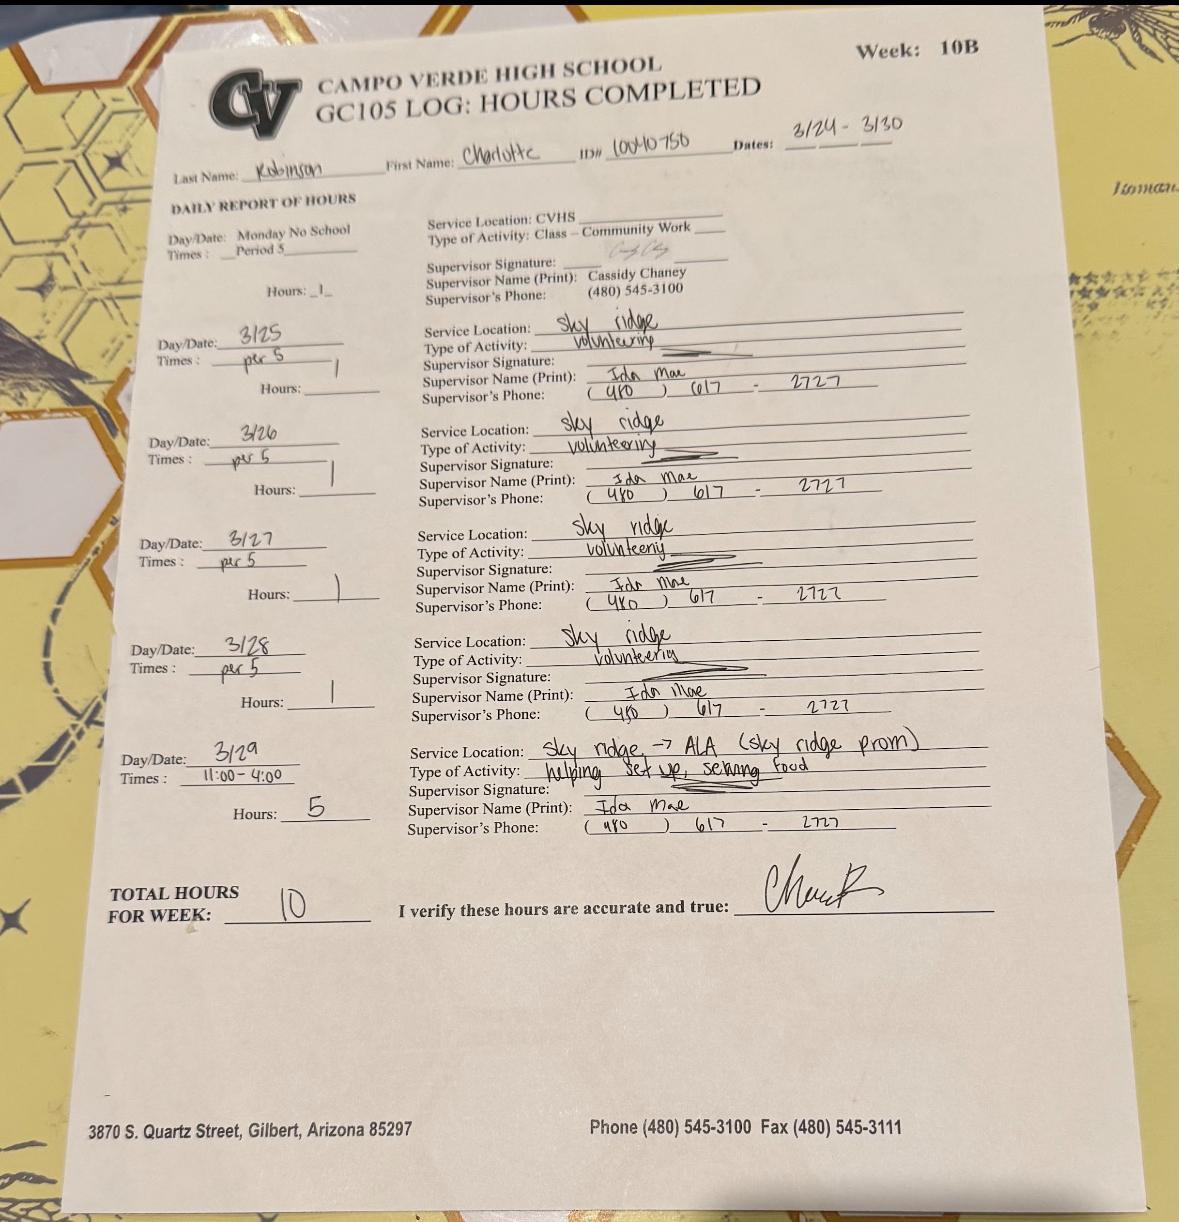 Week: 10B
CV
CAMPO VERDE HIGH SCHOOL
GC105 LOG: HOURS COMPLETED
Last Name: Robinson First Name: Charlotte ID# 10040750 Dates: 3/24 - 3/30
DAILY REPORT OF HOURS
Day/Date: Monday No School
Times : Period 5
Hours: 1
Service Location: CVHS
Type of Activity: Class – Community Work
Supervisor Signature:
Supervisor Name (Print): Cassidy Chaney
Supervisor's Phone: (480) 545-3100
Day/Date: 3/25
Times : per 5
Hours: 1
Service Location: sky ridge
Type of Activity: volunteering
Supervisor Signature:
Supervisor Name (Print): Ida Mae
Supervisor's Phone: (480) 617 - 2727
Day/Date: 3/26
Times : per 5
Hours: 1
Service Location: sky ridge
Type of Activity: volunteering
Supervisor Signature:
Supervisor Name (Print): Ida Mae
Supervisor's Phone: (480) 617 - 2727
Day/Date: 3/27
Times : per 5
Hours: 1
Service Location: sky ridge
Type of Activity: volunteering
Supervisor Signature:
Supervisor Name (Print): Ida Mae
Supervisor's Phone: (480) 617 - 2727
Day/Date: 3/28
Times : per 5
Hours: 1
Service Location: sky ridge
Type of Activity: volunteering
Supervisor Signature:
Supervisor Name (Print): Ida Mae
Supervisor's Phone: (480) 617 - 2727
Day/Date: 3/29
Times : 11:00 - 4:00
Hours: 5
Service Location: sky ridge → ALA (sky ridge prom)
Type of Activity: helping set up, serving food
Supervisor Signature:
Supervisor Name (Print): Ida Mae
Supervisor's Phone: (480) 617 - 2727
TOTAL HOURS
FOR WEEK: 10
I verify these hours are accurate and true:
3870 S. Quartz Street, Gilbert, Arizona 85297 Phone (480) 545-3100 Fax (480) 545-3111